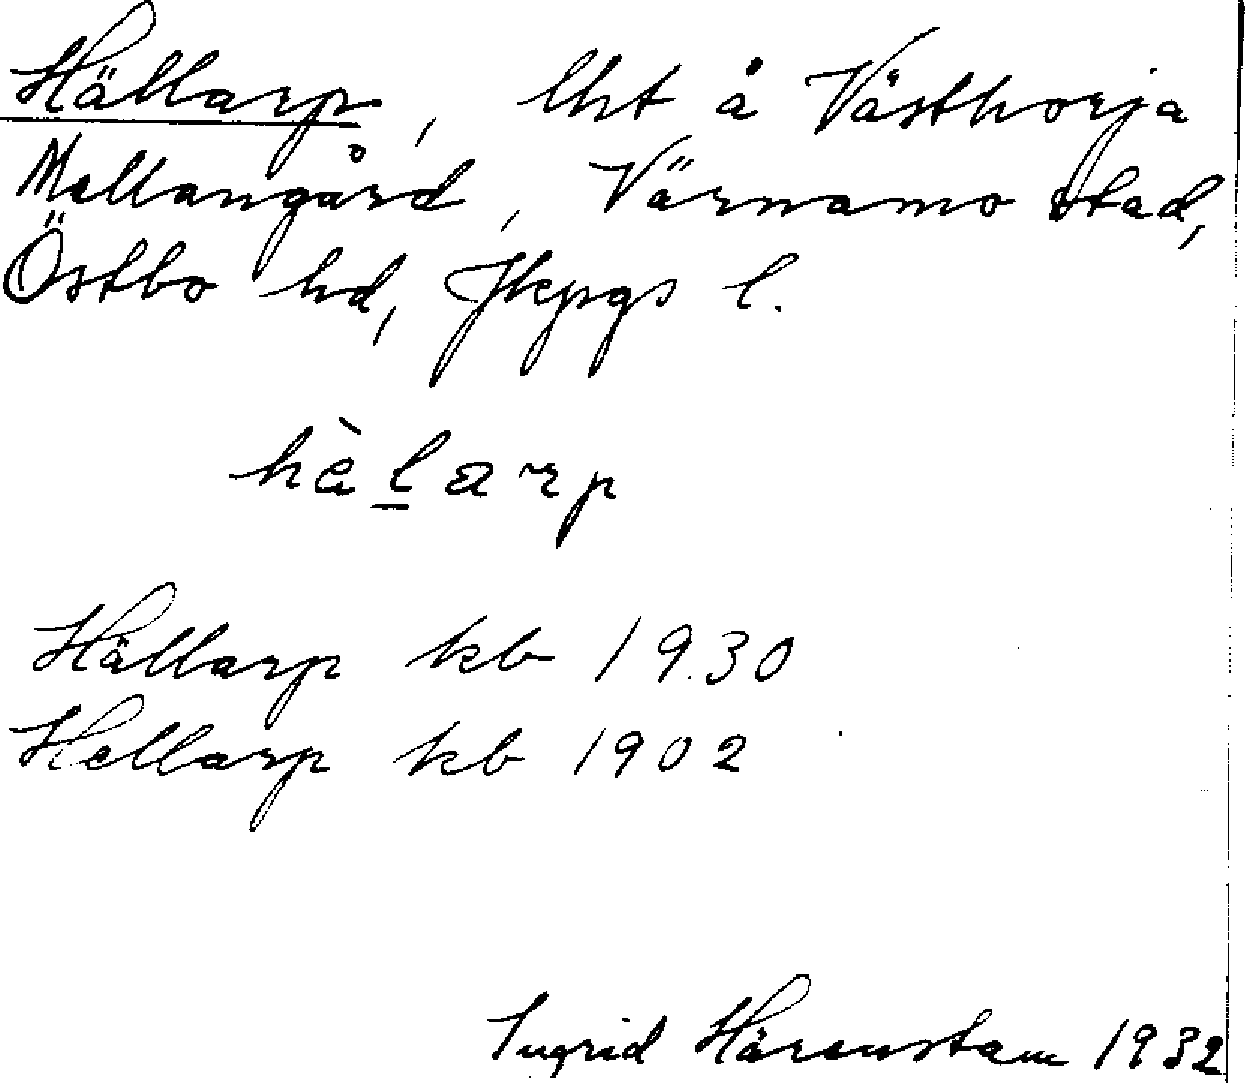 Hällarp, lht å Västhorja
Mellangård, Värnamo stad,
Östbo hd, Jkpgs l.
hàlarp
Hällarp kb 1930
Hellarp kb 1902
Ingrid Härenstam 1932